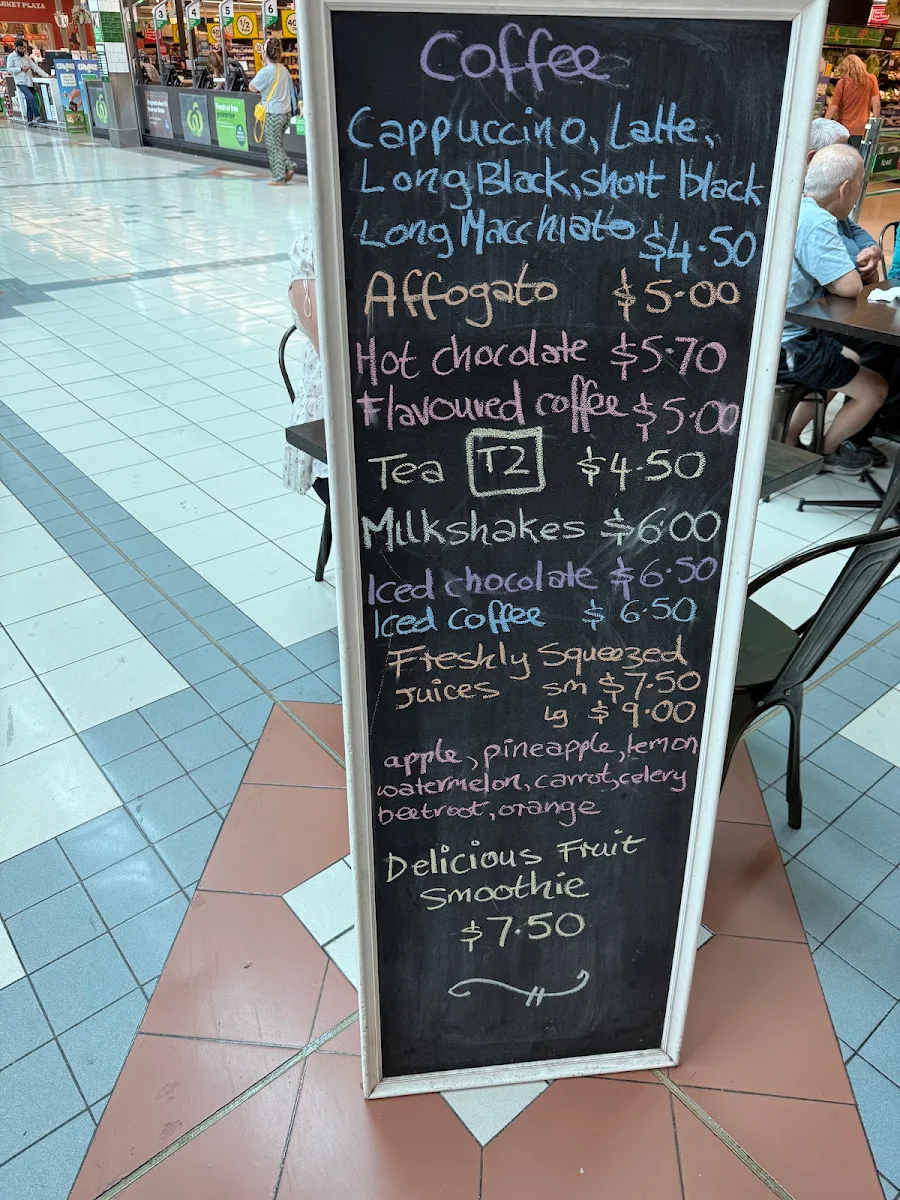 RKET PLAZA
3
4
5
6
1/2
40
Coffee
Cappuccino, Latte,
Long Black, short black
Long Macchiato $4.50
Affogato $5.00
Hot chocolate $5.70
Flavoured coffee $5.00
Tea T2 $4.50
Milkshakes $6.00
Iced chocolate $6.50
Iced Coffee $6.50
Freshly Squeezed
Juices sm $7.50
lg $9.00
apple, pineapple, lemon
watermelon, carrot, celery
beetroot, orange
Delicious Fruit
Smoothie
$7.50